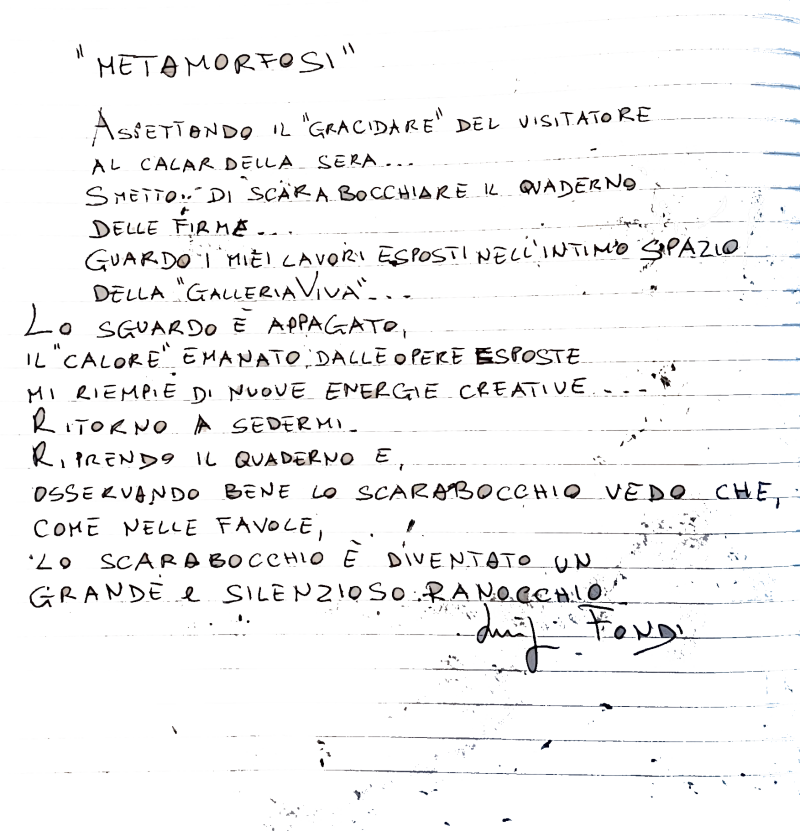 "METAMORFOSI"
ASPETTANDO IL "GRACIDARE" DEL VISITATORE
AL CALAR DELLA SERA...
SMETTO.. DI SCARABOCCHIARE IL QUADERNO
DELLE FIRME...
GUARDO I MIEI LAVORI ESPOSTI NELL'INTIMO SPAZIO
DELLA "GALLERIA VIVA"...
LO SGUARDO È APPAGATO,
IL "CALORE" EMANATO DALLE OPERE ESPOSTE
MI RIEMPIE DI NUOVE ENERGIE CREATIVE....
RITORNO A SEDERMI.
RIPRENDO IL QUADERNO E,
OSSERVANDO BENE LO SCARABOCCHIO VEDO CHE,
COME NELLE FAVOLE,
LO SCARABOCCHIO È DIVENTATO UN
GRANDE e SILENZIOSO RANOCCHIO
FONDI